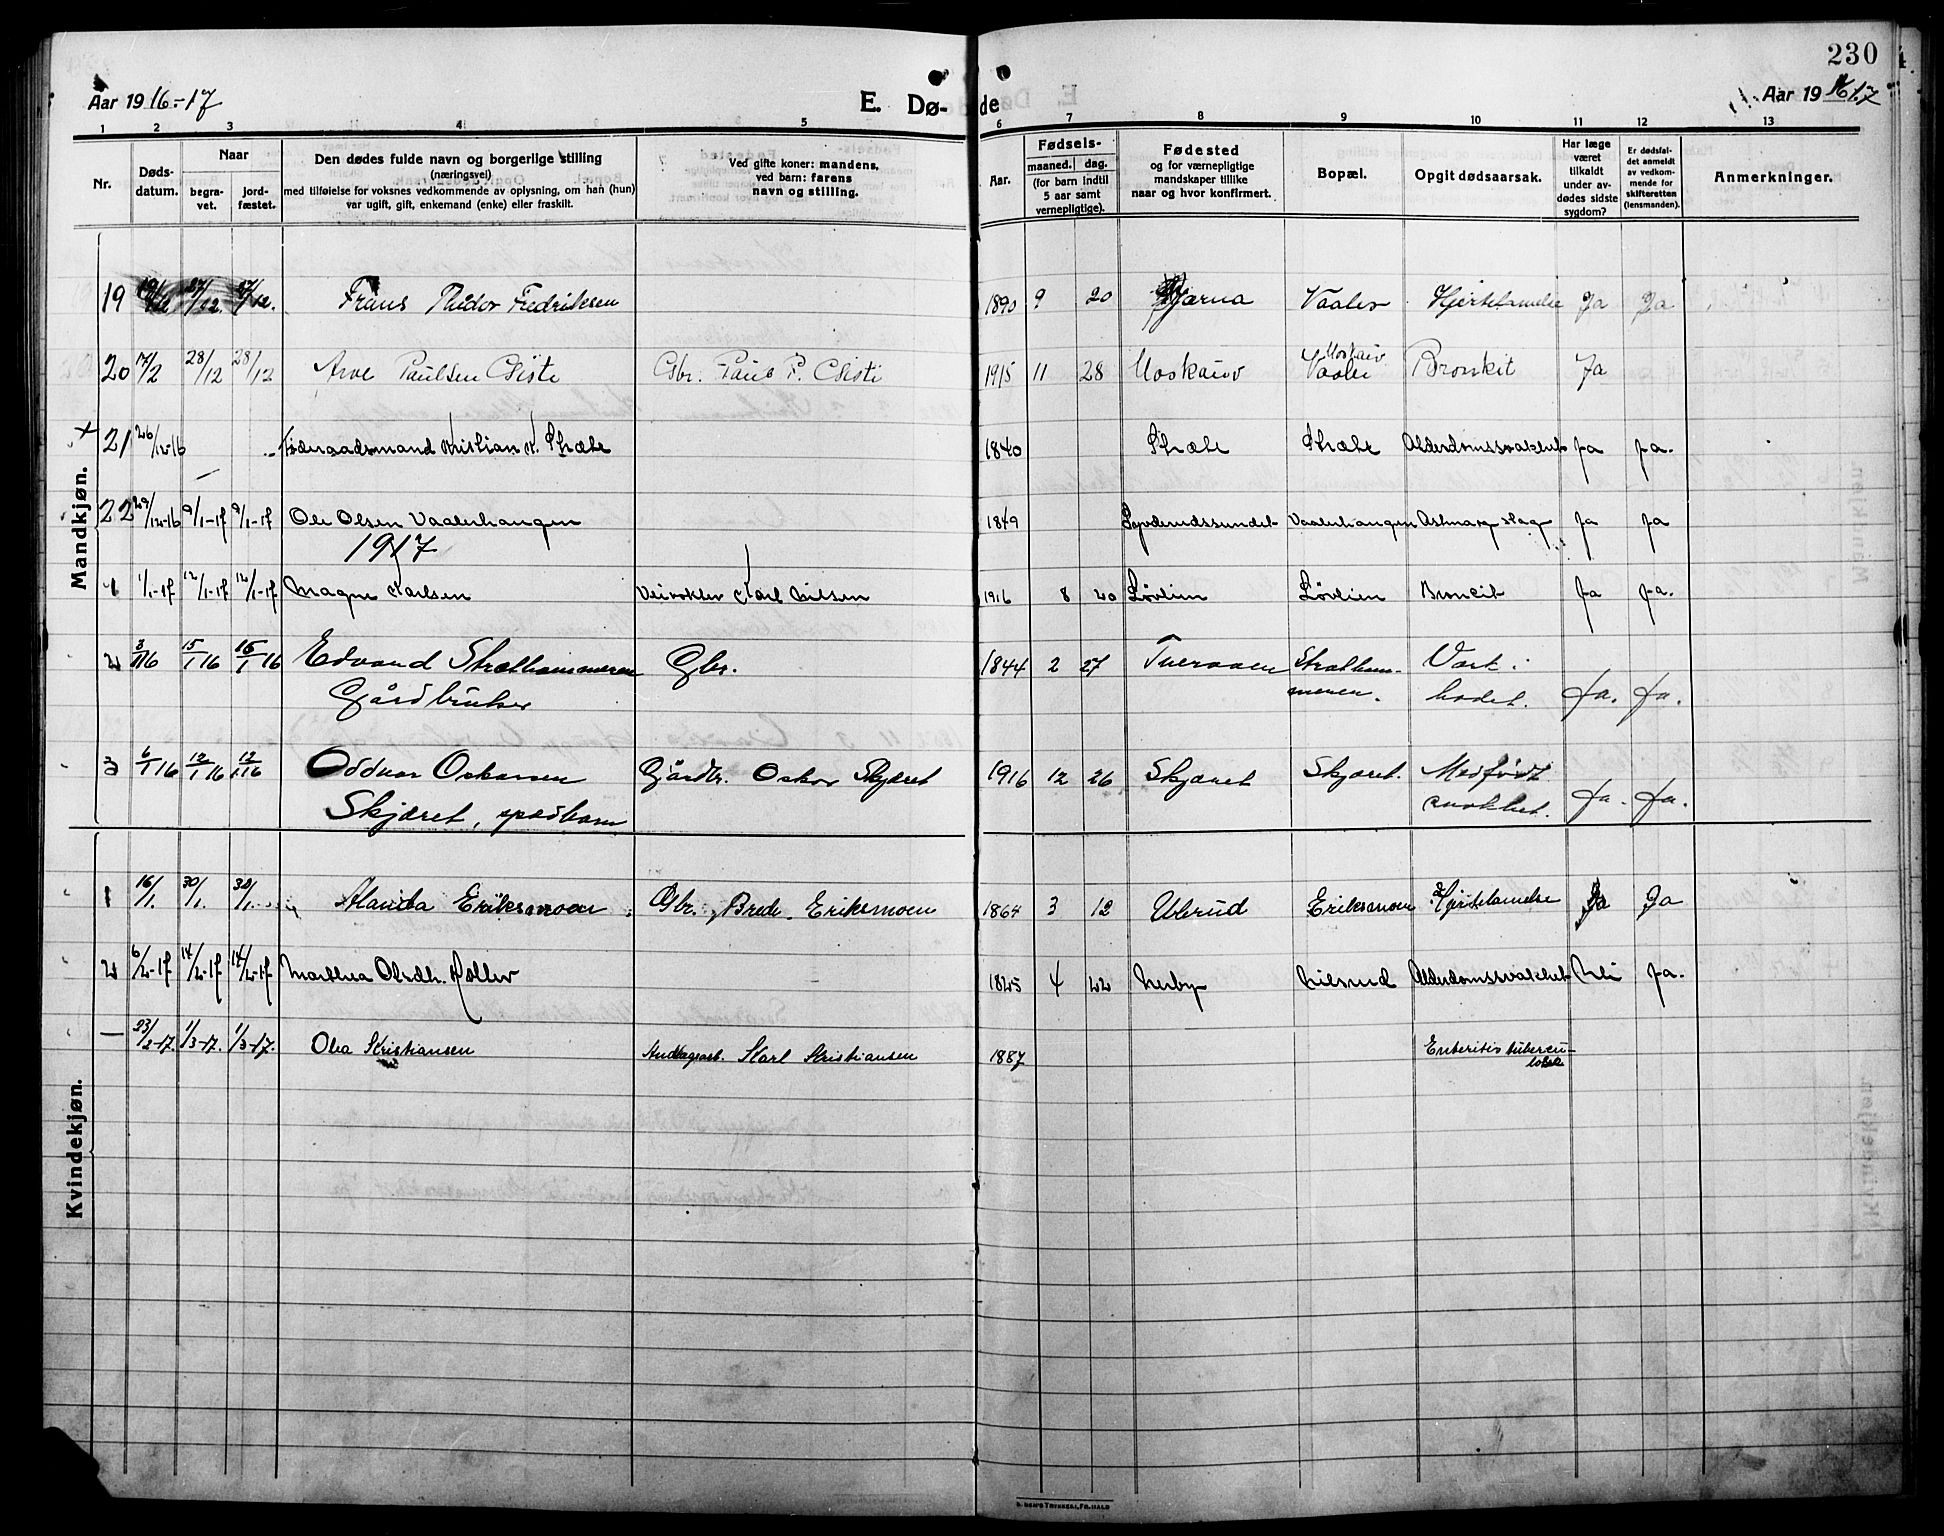 230
Aar 1916-17
E. Dø-
de
Aar 19 1617
1 2 3 4 5 6 7 8 9 10 11 12 13
Nr.
Døds-
datum.
Naar
begra-
vet.
jord-
fæstet.
Den dødes fulde navn og borgerlige stilling
(næringsvei)
med tilføielse for voksnes vedkommende av oplysning, om han (hun)
var ugift, gift, enkemand (enke) eller fraskilt.
Ved gifte koner: mandens,
ved barn: farens
navn og stilling.
Aar.
Fødsels-
maaned. dag.
(for barn indtil
5 aar samt
vernepligtige).
Fødested
og for værnepligtige
mandskaper tillike
naar og hvor konfirmert.
Bopæl.
Opgit dødsaarsak.
Har læge
været
tilkaldt
under av-
dødes sidste
sygdom?
Er dødsfal-
det anmeldt
av vedkom-
mende for
skifteretten
(lensmanden).
Anmerkninger.
Mandkjøn.
19 19/12 27/12. 27/12. Frans Fredriksen 1890 9 20 Vaaler Hjertelamelse Ja Ja
20 17/2 28/12 28/12 Arve Paulsen Gbr. 1915 11 28 Moskæiv Moskæiv
Vaaler Bronkit Ja
+ 21 26/12-16 Kristian K. Stræte 1840 Stræte Stræte Alderdomssvakhet Ja Ja.
22 29/12-16 9/1-17 9/1-17 Ole Olsen Vaalerhaugen 1849 Vaalerhaugen Ja Ja
1917
1 1/1-17 12/1-17 12/1-17 Magne Karlsen Veivokter Karl Nilsen 1916 8 20 Løvlien Løvlien Broncit Ja Ja.
2 3/1 16 15/1 16 15/1 16 Edvard Stræthammeren Gbr. 1844 2 27 Tveraaen Stætham-
meren. Vækst i
Gårdbruker hodet. Ja. Ja.
3 6/1 16 12/1 16 12/1 16 Oddvar Oskarsen Gårdbr. Oskar Skjæret 1916 12 26 Skjæret Skjæret. Medfødt
Skjæret, spædbarn svakhet. Ja. Ja.
Kvindekjøn.
1 16/1. 30/1. 30/1. Eriksmoen Gbr. Brede Eriksmoen 1864 3 12 Ulerud Eriksmoen Hjertelamelse Ja Ja
2 6/2-17 14/2-17 14/2-17 Marthea Olsdtr. 1825 4 22 Nerby Nilsrud Alderdomssvakhet Nei Ja.
— 23/2-17. 1/3-17. 1/3-17. Olea Kristiansen Karl Kristiansen 1887 Enteritis tubercu-
losa